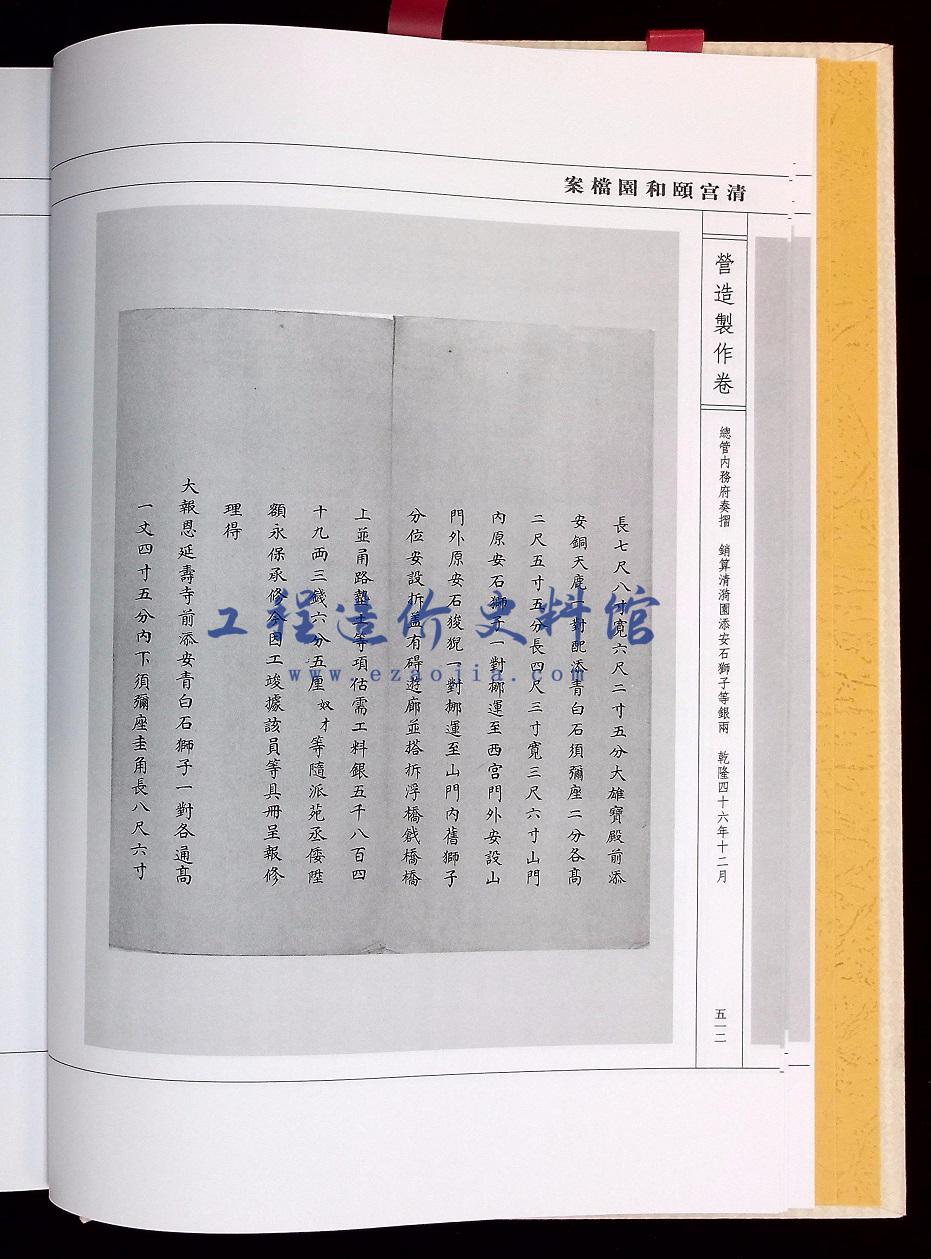 清宮頤和園檔案
營造製作卷
總管內務府奏摺 銷算清漪園添安石獅子等銀兩 乾隆四十六年十二月
五一二
長七尺八寸寬六尺二寸五分大雄寶殿前添
安銅天鹿一對配添青白石須彌座二分各高
二尺五寸五分長四尺三寸寬三尺六寸山門
內原安石獅子一對挪運至西宮門外安設山
門外原安石狻猊一對挪運至山門內舊獅子
分位安設拆蓋有碍遊廊並搭拆浮橋戧橋橋
上並甬路墊土等項估需工料銀五千八百四
十九两三錢六分五厘奴才等隨派苑丞倭陞
額永保承修今因工竣據該員等具冊呈報修
理得
大報恩延壽寺前添安青白石獅子一對各通高
一丈四寸五分內下須彌座圭角長八尺六寸
工程造价史料馆
www.ezaojia.com